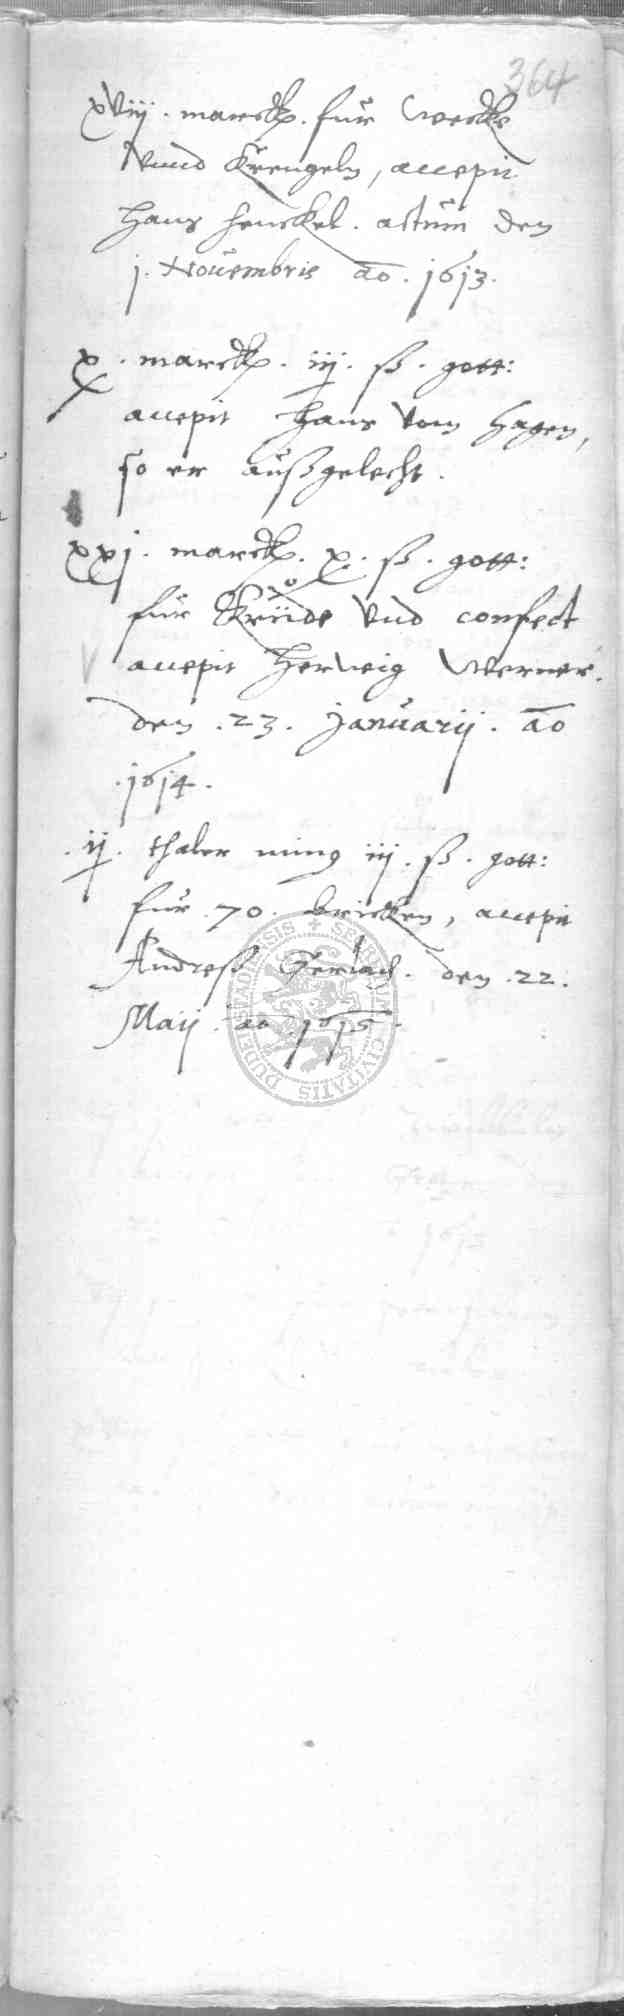 364
xviij. marck. für Wecke
vnnd Krengeln, accepit
Hans Henckel. actum den
j. Nouembris ao. 1613.
x. marck. iij. ß. gott:
accepit Hans vom Hagen,
so er außgelecht.
xxj. marck. x. ß. gott:
für Krüde vnd confect
accepit Herwig Werner.
den .23. Januarij. ao
.1614.
.ij. thaler ming iij. ß. gott:
für .70. bricken, accepit
Andreß Gerlach. den .22.
Maij. ao 1615.
SECRETUM CIVITATIS DUDERSTADIENSIS